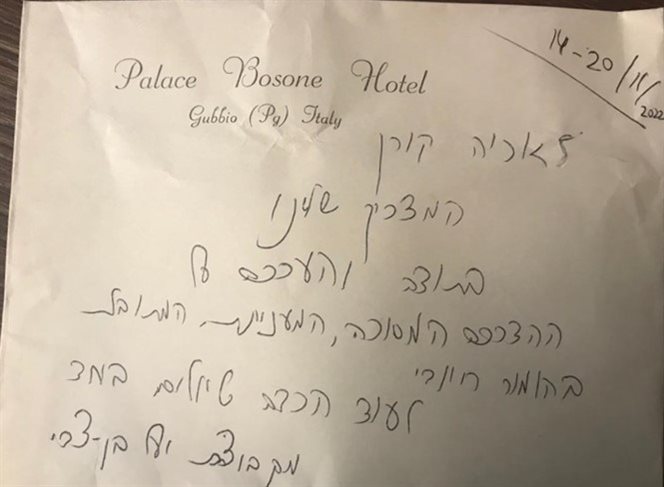 14-20/11/2022
Palace Bosone Hotel
Gubbio (Pg) Italy
לאריה קורן
המדריך שלנו
בתודה והערכה על
ההדרכה המסורה, המעניינת, המתובלת
בהומור
לעוד הרבה טיולים ביחד
מקבוצת יעל בן-צבי